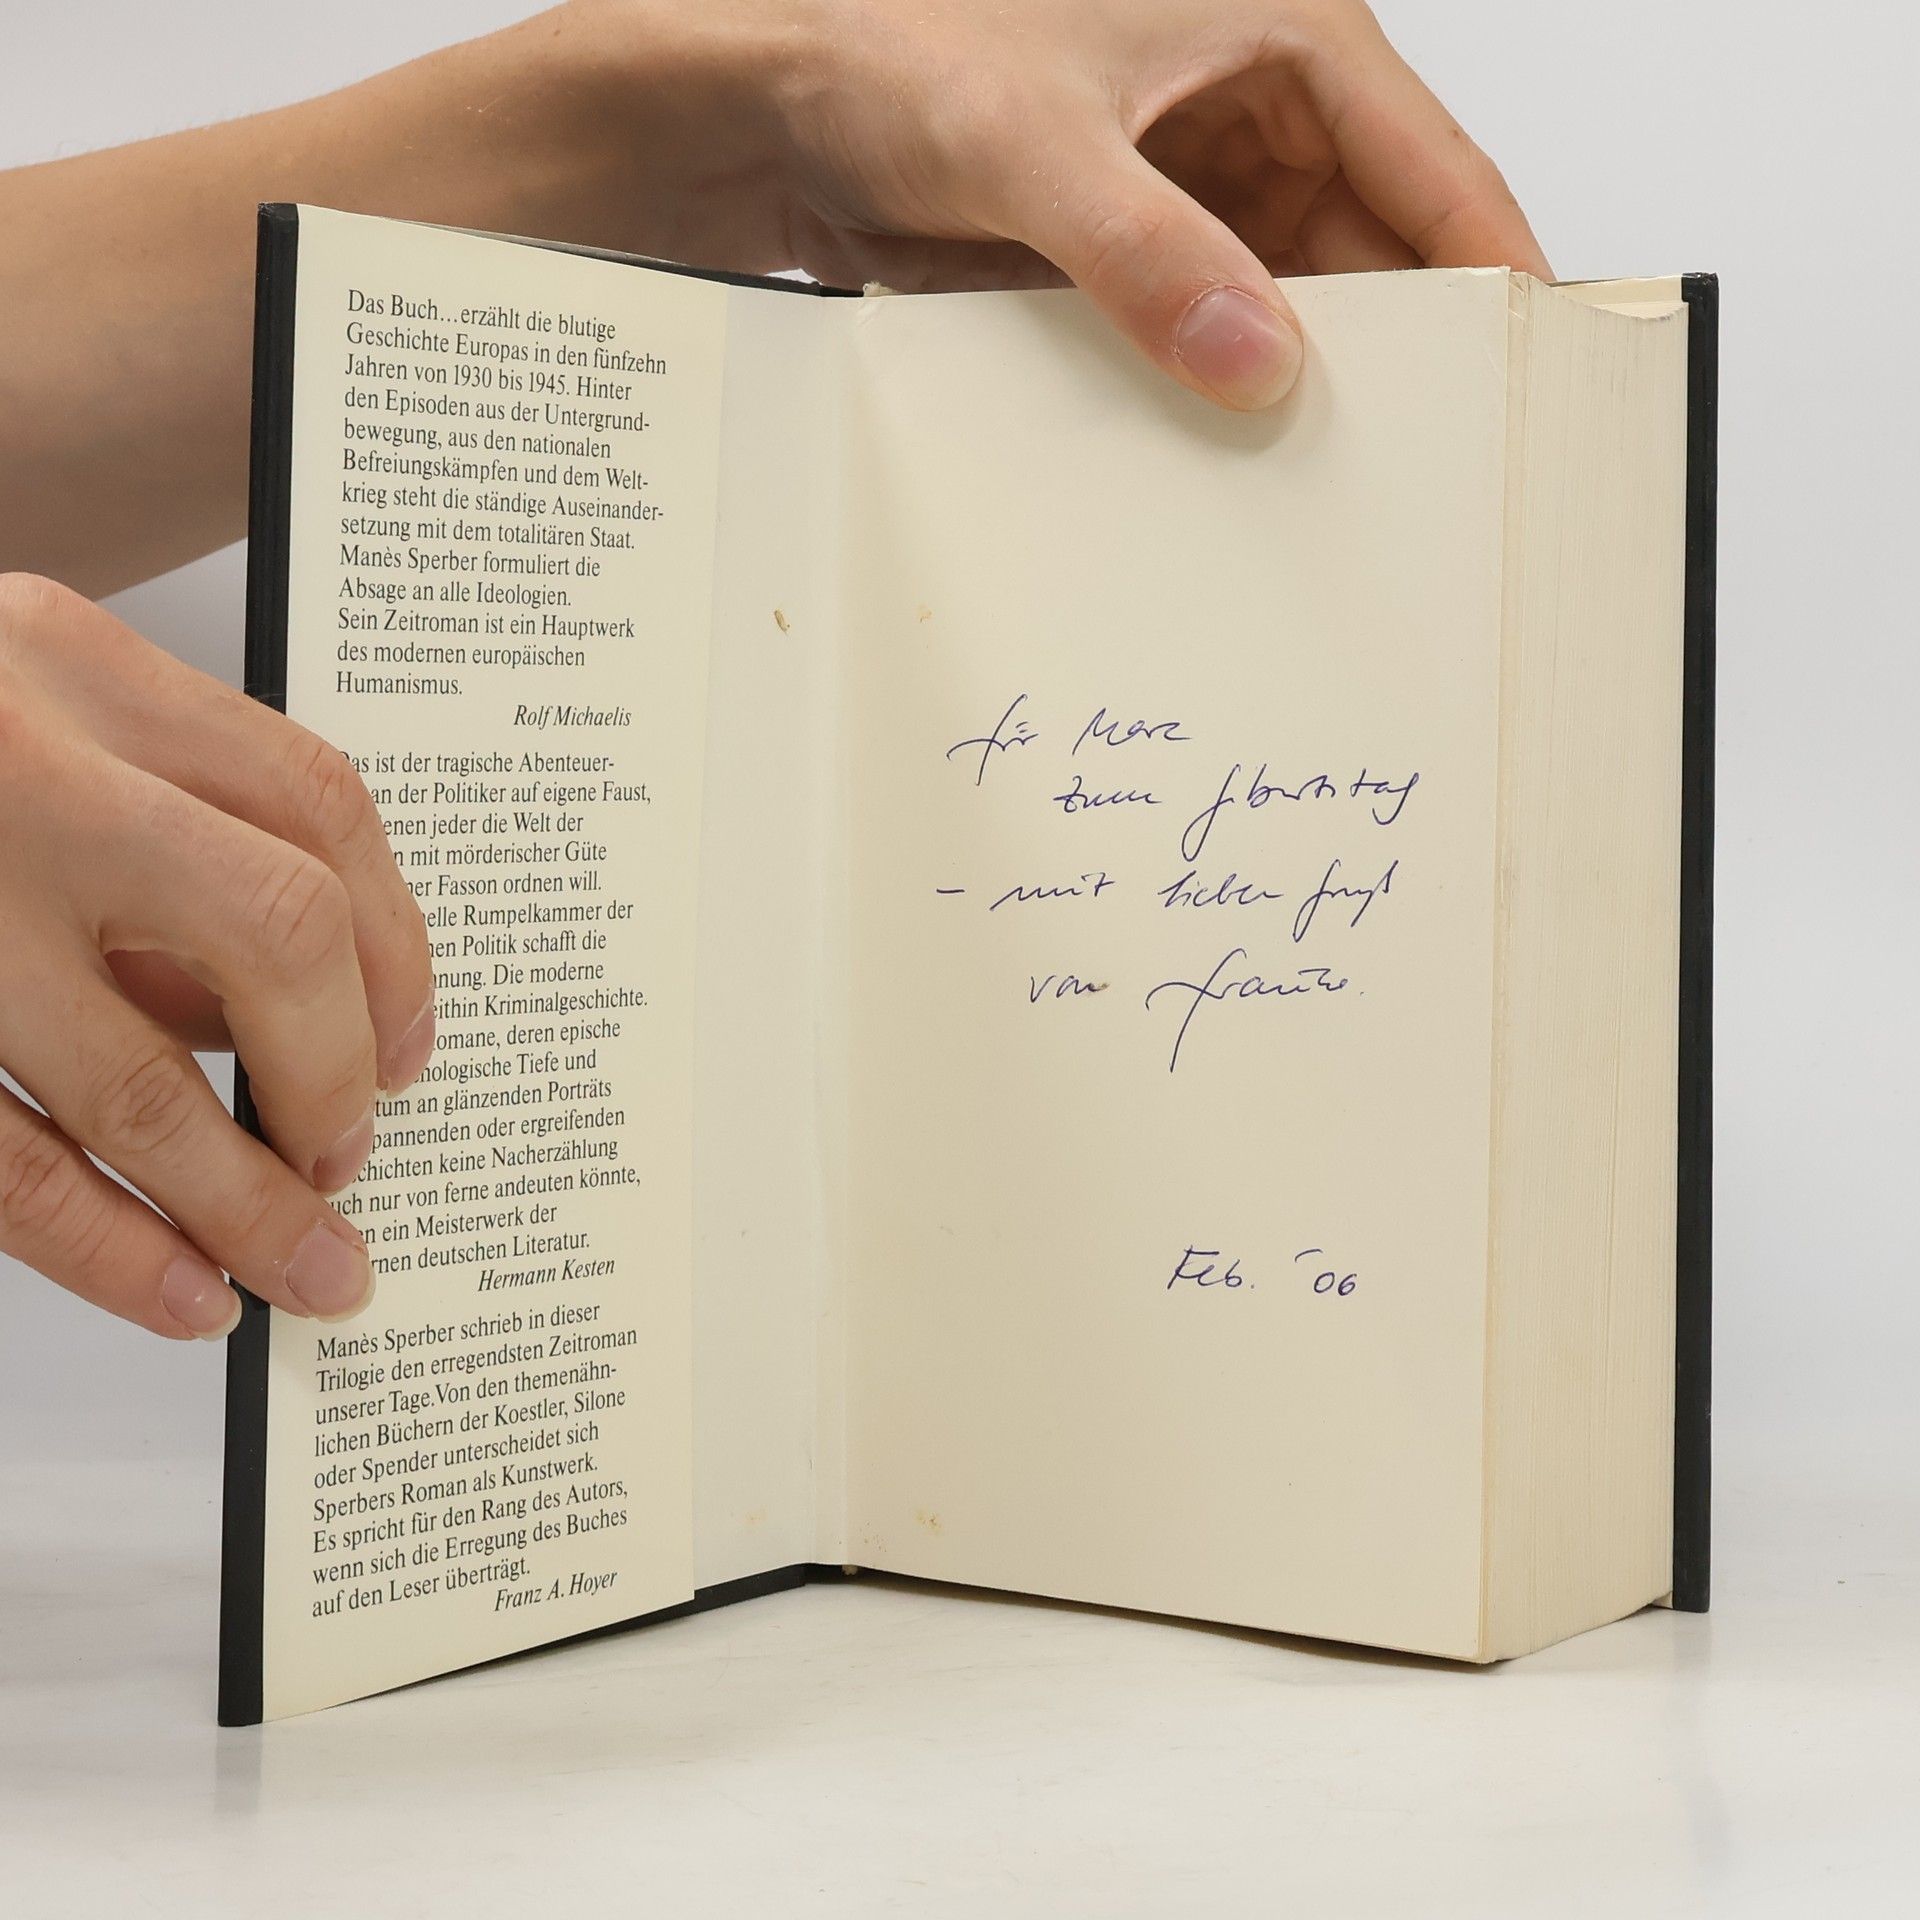 Das Buch...erzählt die blutige
Geschichte Europas in den fünfzehn
Jahren von 1930 bis 1945. Hinter
den Episoden aus der Untergrund-
bewegung, aus den nationalen
Befreiungskämpfen und dem Welt-
krieg steht die ständige Auseinander-
setzung mit dem totalitären Staat.
Manès Sperber formuliert die
Absage an alle Ideologien.
Sein Zeitroman ist ein Hauptwerk
des modernen europäischen
Humanismus.
Rolf Michaelis
ist der tragische Abenteuer-
an der Politiker auf eigene Faust,
jeder die Welt der
mit mörderischer Güte
Fasson ordnen will.
Rumpelkammer der
Politik schafft die
Die moderne
Kriminalgeschichte.
deren epische
Tiefe und
an glänzenden Porträts
oder ergreifenden
keine Nacherzählung
nur von ferne andeuten könnte,
ein Meisterwerk der
deutschen Literatur.
Hermann Kesten
Manès Sperber schrieb in dieser
Trilogie den erregendsten Zeitroman
unserer Tage.Von den themenähn-
lichen Büchern der Koestler, Silone
oder Spender unterscheidet sich
Sperbers Roman als Kunstwerk.
Es spricht für den Rang des Autors,
wenn sich die Erregung des Buches
auf den Leser überträgt.
Franz A. Hoyer
für Marc
zum Geburtstag
- mit lieben Gruß
von Frauke.
Feb. '06